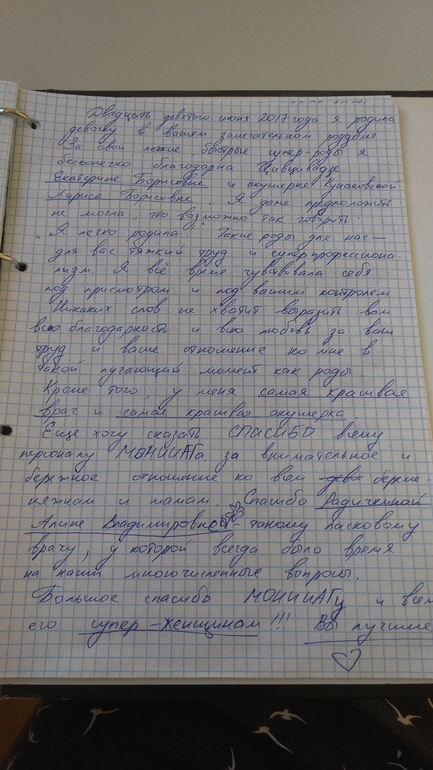 Двадцать девятого июня 2017 года я родила
девочку в вашем замечательном роддоме
За свои легкие быстрые супер-роды я
бесконечно благодарна Цивцивадзе
Екатерине Борисовне и акушерке
Ларисе Борисовне. Я даже предположить
не могла, что возможно так говорить:
"Я легко родила". Такие роды для нас —
для вас тяжкий труд и суперпрофессиона-
лизм. Я всё время чувствовала себя
под присмотром и под вашим контролем
Никаких слов не хватит выразить вам
всю благодарность и всю любовь за ваш
труд и ваше отношение ко мне в
такой пугающий момент как роды.
Кроме того, у меня самая красивая
врач и самая красивая акушерка.
Еще хочу сказать СПАСИБО всему
персоналу МОНИИАГа за внимательное и
бережное отношение ко всем бере-
меняжкам и мамам. Спасибо Радичкиной
Алине Владимировне - такому ласковому
врачу, у которой всегда было время
на наши многочисленные вопросы.
Большое спасибо МОНИИАГу и всем
его супер-женщинам!!! Вы лучшие